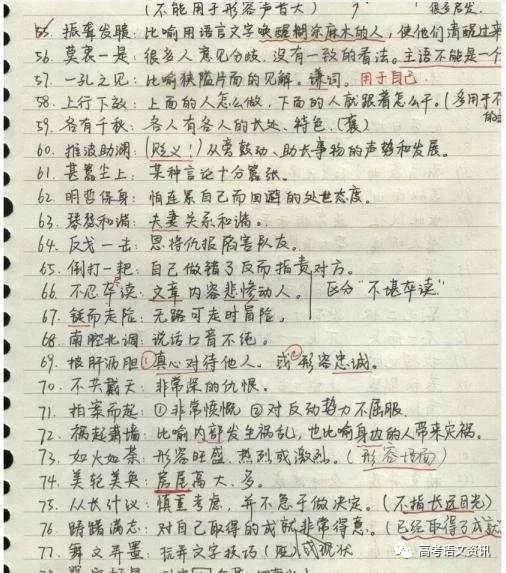 (不能用于形容声音大)
55. 振聋发聩：比喻用语言文字唤醒糊涂麻木的人，使他们清醒过来
56. 莫衷一是：很多人意见分歧，没有一致的看法。主语不能是一个
57. 一孔之见：比喻狭隘片面的见解。谦词。用于自己
58. 上行下效：上面的人怎么做，下面的人就跟着怎么干。(多用于不
59. 各有千秋：各人有各人的长处、特色。(褒)
60. 推波助澜：(贬义！)从旁鼓动、助长事物的声势和发展。
61. 甚嚣尘上：某种言论十分嚣张。
62. 明哲保身：怕连累自己而回避的处世态度。
63. 琴瑟和谐：夫妻关系和谐。
64. 反戈一击：恩将仇报陷害队友。
65. 倒打一耙：自己做错了反而指责对方。
66. 不忍卒读：文章内容悲惨动人。 区分“不堪卒读”
67. 铤而走险：无路可走时冒险。
68. 南腔北调：说话口音不纯。
69. 披肝沥胆：①真心对待他人。或②形容忠诚。
70. 不共戴天：非常深的仇恨。
71. 拍案而起：①非常愤慨 ②对反动势力不屈服
72. 祸起萧墙：比喻内部发生祸乱，也比喻身边的人带来灾祸。
73. 如火如荼：形容旺盛、热烈或激烈。(形容场面)
74. 美轮美奂：房屋高大、多。
75. 从长计议：慎重考虑，并不急于做决定。(不指长远目光)
76. 踌躇满志：对自己取得的成就非常得意。(已经取得了成就
77. 舞文弄墨：玩弄文字技巧(贬)
高考语文资讯